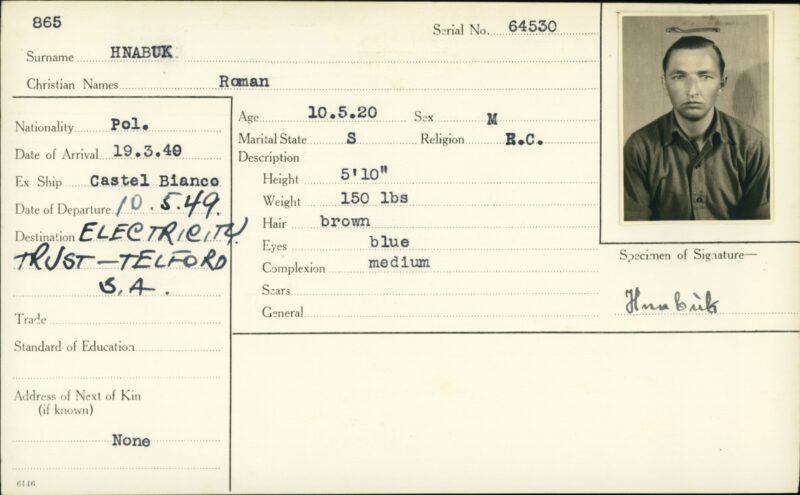 865
Serial No. 64530
Surname HNABUK
Christian Names Roman
Nationality Pol.
Date of Arrival 19.3.49
Ex Ship Castel Bianco
Date of Departure 10.5.49.
Destination ELECTRICITY
TRUST — TELFORD
S.A.
Trade
Standard of Education
Address of Next of Kin
(if known)
None
6146.
Age 10.5.20 Sex M
Marital State S Religion R.C.
Description
Height 5'10"
Weight 150 lbs
Hair brown
Eyes blue
Complexion medium
Scars
General
Specimen of Signature—
Hnabuk